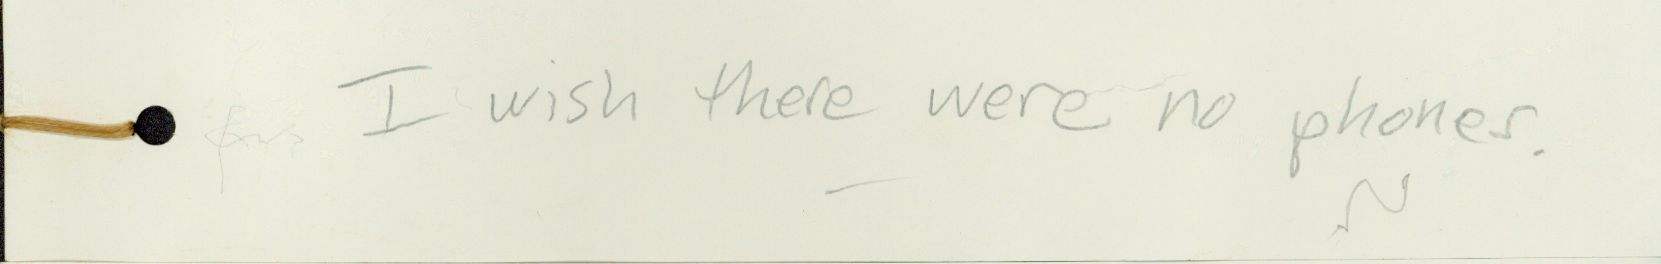 I wish there were no phones.